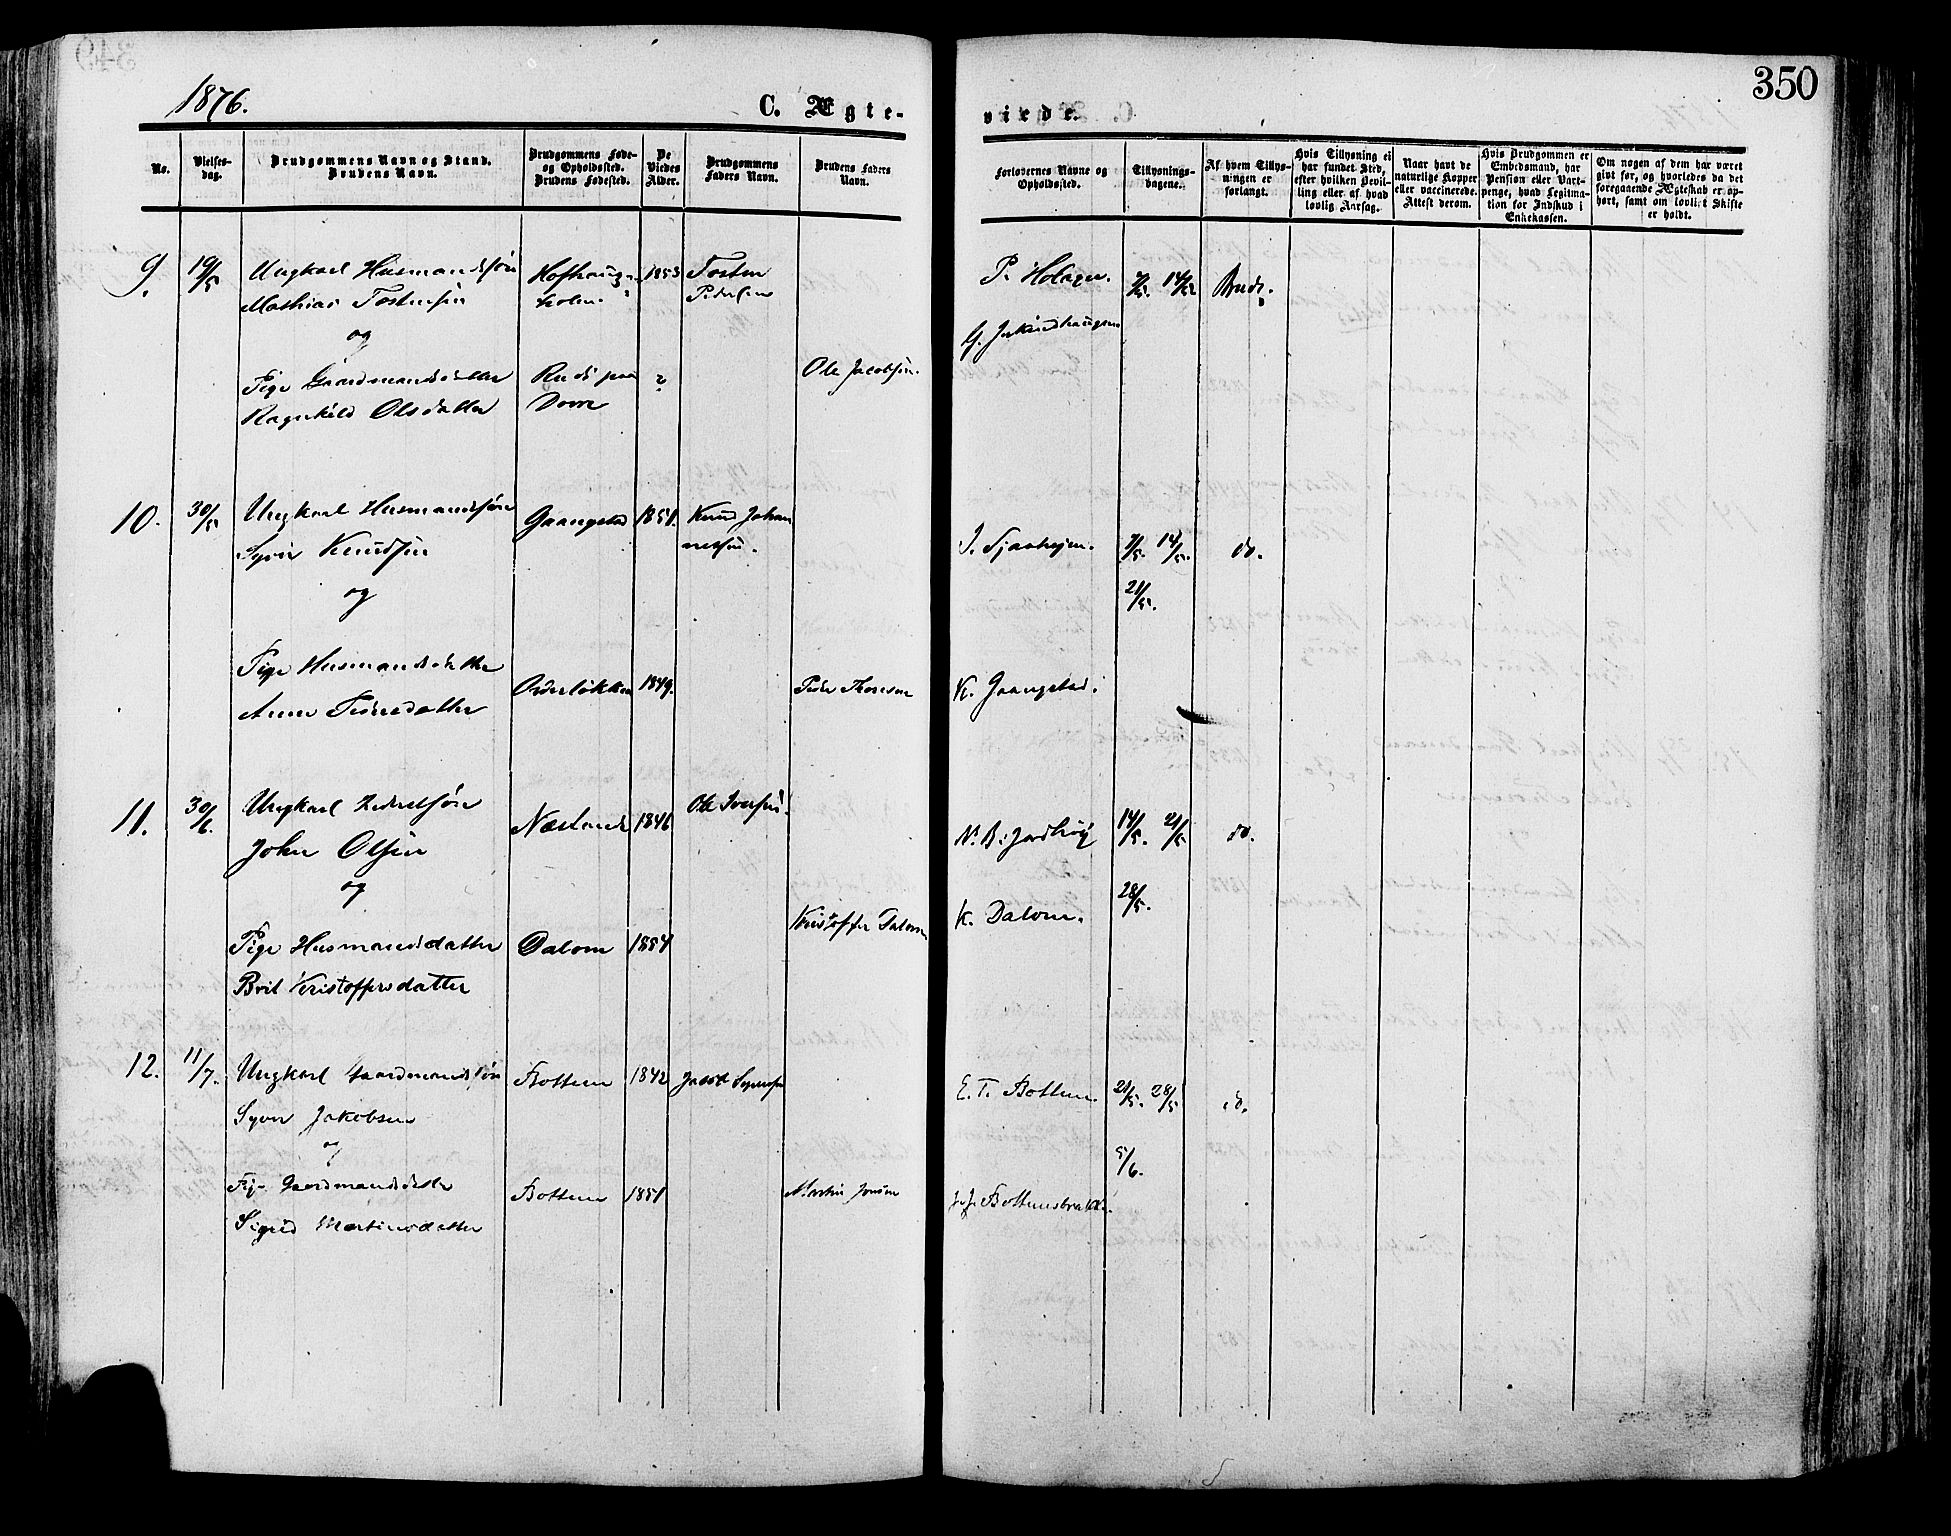 350
1876.
C. Ægte-
viede.
No.
Vielses-
dag.
Brudgommens Navn og Stand.
Brudens Navn.
Brudgommens Føde-
og Opholdssted.
Brudens Fødested.
De
Viedes
Alder.
Brudgommens
Faders Navn.
Brudens Faders
Navn.
Forlovernes Navne og
Opholdssted.
Tillysnings-
dagene.
Af hvem Tillys-
ningen er
forlangt.
Hvis Tillysning ei
har fundet Sted,
efter hvilken Bevil-
ling eller af hvad
lovlig Aarsag.
Naar havt de
naturlige Kopper
eller vaccinerede.
Attest derom.
Hvis Brudgommen er
Embedsmand, har
Pension eller Vart-
penge, hvad Legitima-
tion for Indskud i
Enkekassen.
Om nogen af dem har været
gift før, og hvorledes da det
foregaaende Ægteskab er op-
hørt, samt om lovligt Skifte
er holdt.
9. 19/5 Ungkarl Husmandssøn 1853 Tosten P. Holager. 14/5 Brudg.
Mathias Tostensen Pedersen
og
Pige Gaardmandsdatter Ruds paa ? Ole Jacobsen.
Ragnhild Olsdatter Dovre
10. 30/5 Ungkarl Husmandssøn Gaangstad 1851. Knud Johan
Syver Knudsen nessen. 7/5. 14/5. do.
og 21/5.
Pige Husmandsdatter 1849. Peder
Anne K. Gaangstad.
11. 30/6. Ungkarl Ole Iversen.
John Olsen 1846 14/5. 21/5 do.
og 28/5.
Kristoffer Dalom K. Dalom.
Pige Husmandsdatter Dalom 1854
Brit Kristoffersdatter
12. 11/7. Ungkarl Gaardmandssøn Bottem 1842 Jacob E. T. Bottem. 21/5. 28/5 do.
Syver Jakobsen
og 5/6.
Pige Gaardmandsdatter Bottem 1851 Martin Jonsen
Sigrid Martinsdatter